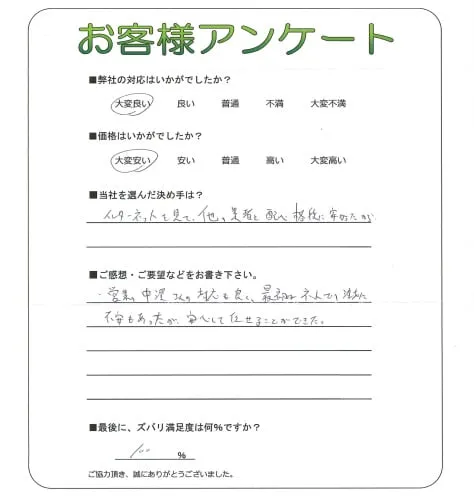 お客様アンケート
■弊社の対応はいかがでしたか？
大変良い 良い 普通 不満 大変不満
■価格はいかがでしたか？
大変安い 安い 普通 高い 大変高い
■当社を選んだ決め手は？
インターネットを見て、他の業者と 格段に安かったが
■ご感想・ご要望などをお書き下さい。
・営業の中澤さんの対応も良く、最初は ネットでの
不安もあったが、安心して任せることができた。
■最後に、ズバリ満足度は何％ですか？
100 %
ご協力頂き、誠にありがとうございました。